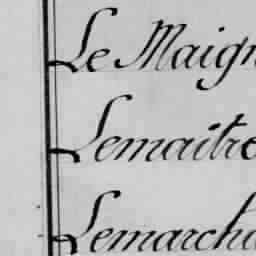 Le Maign
Lemaitre
Lemarcha